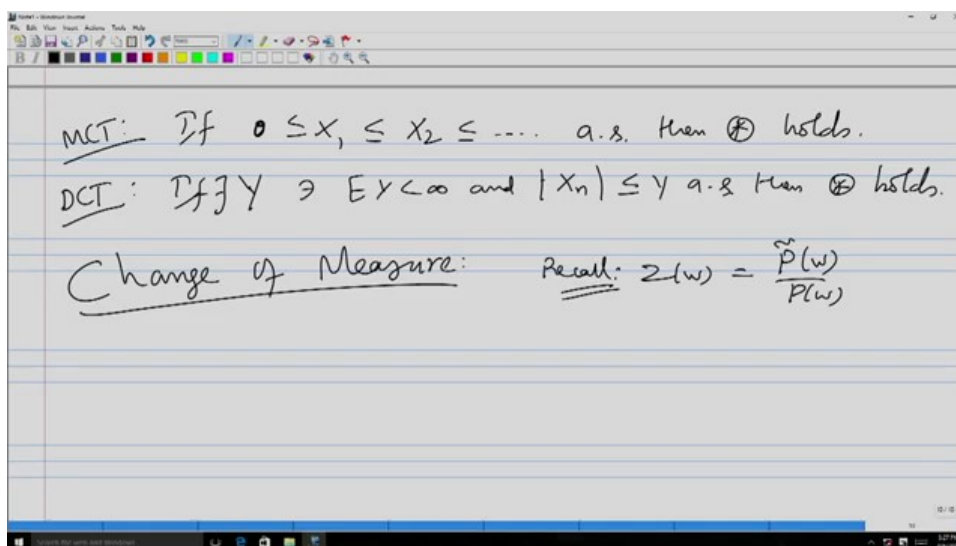 File Edit View Insert Actions Tools Help
MCT: If 0 ≤ X₁ ≤ X₂ ≤ .... a.s. then ⊛ holds.
DCT: If ∃ Y ∋ E Y < ∞ and |Xₙ| ≤ Y a.s then ⊛ holds.
Change of Measure: Recall: Z(ω) = P̃(ω)/P(ω)